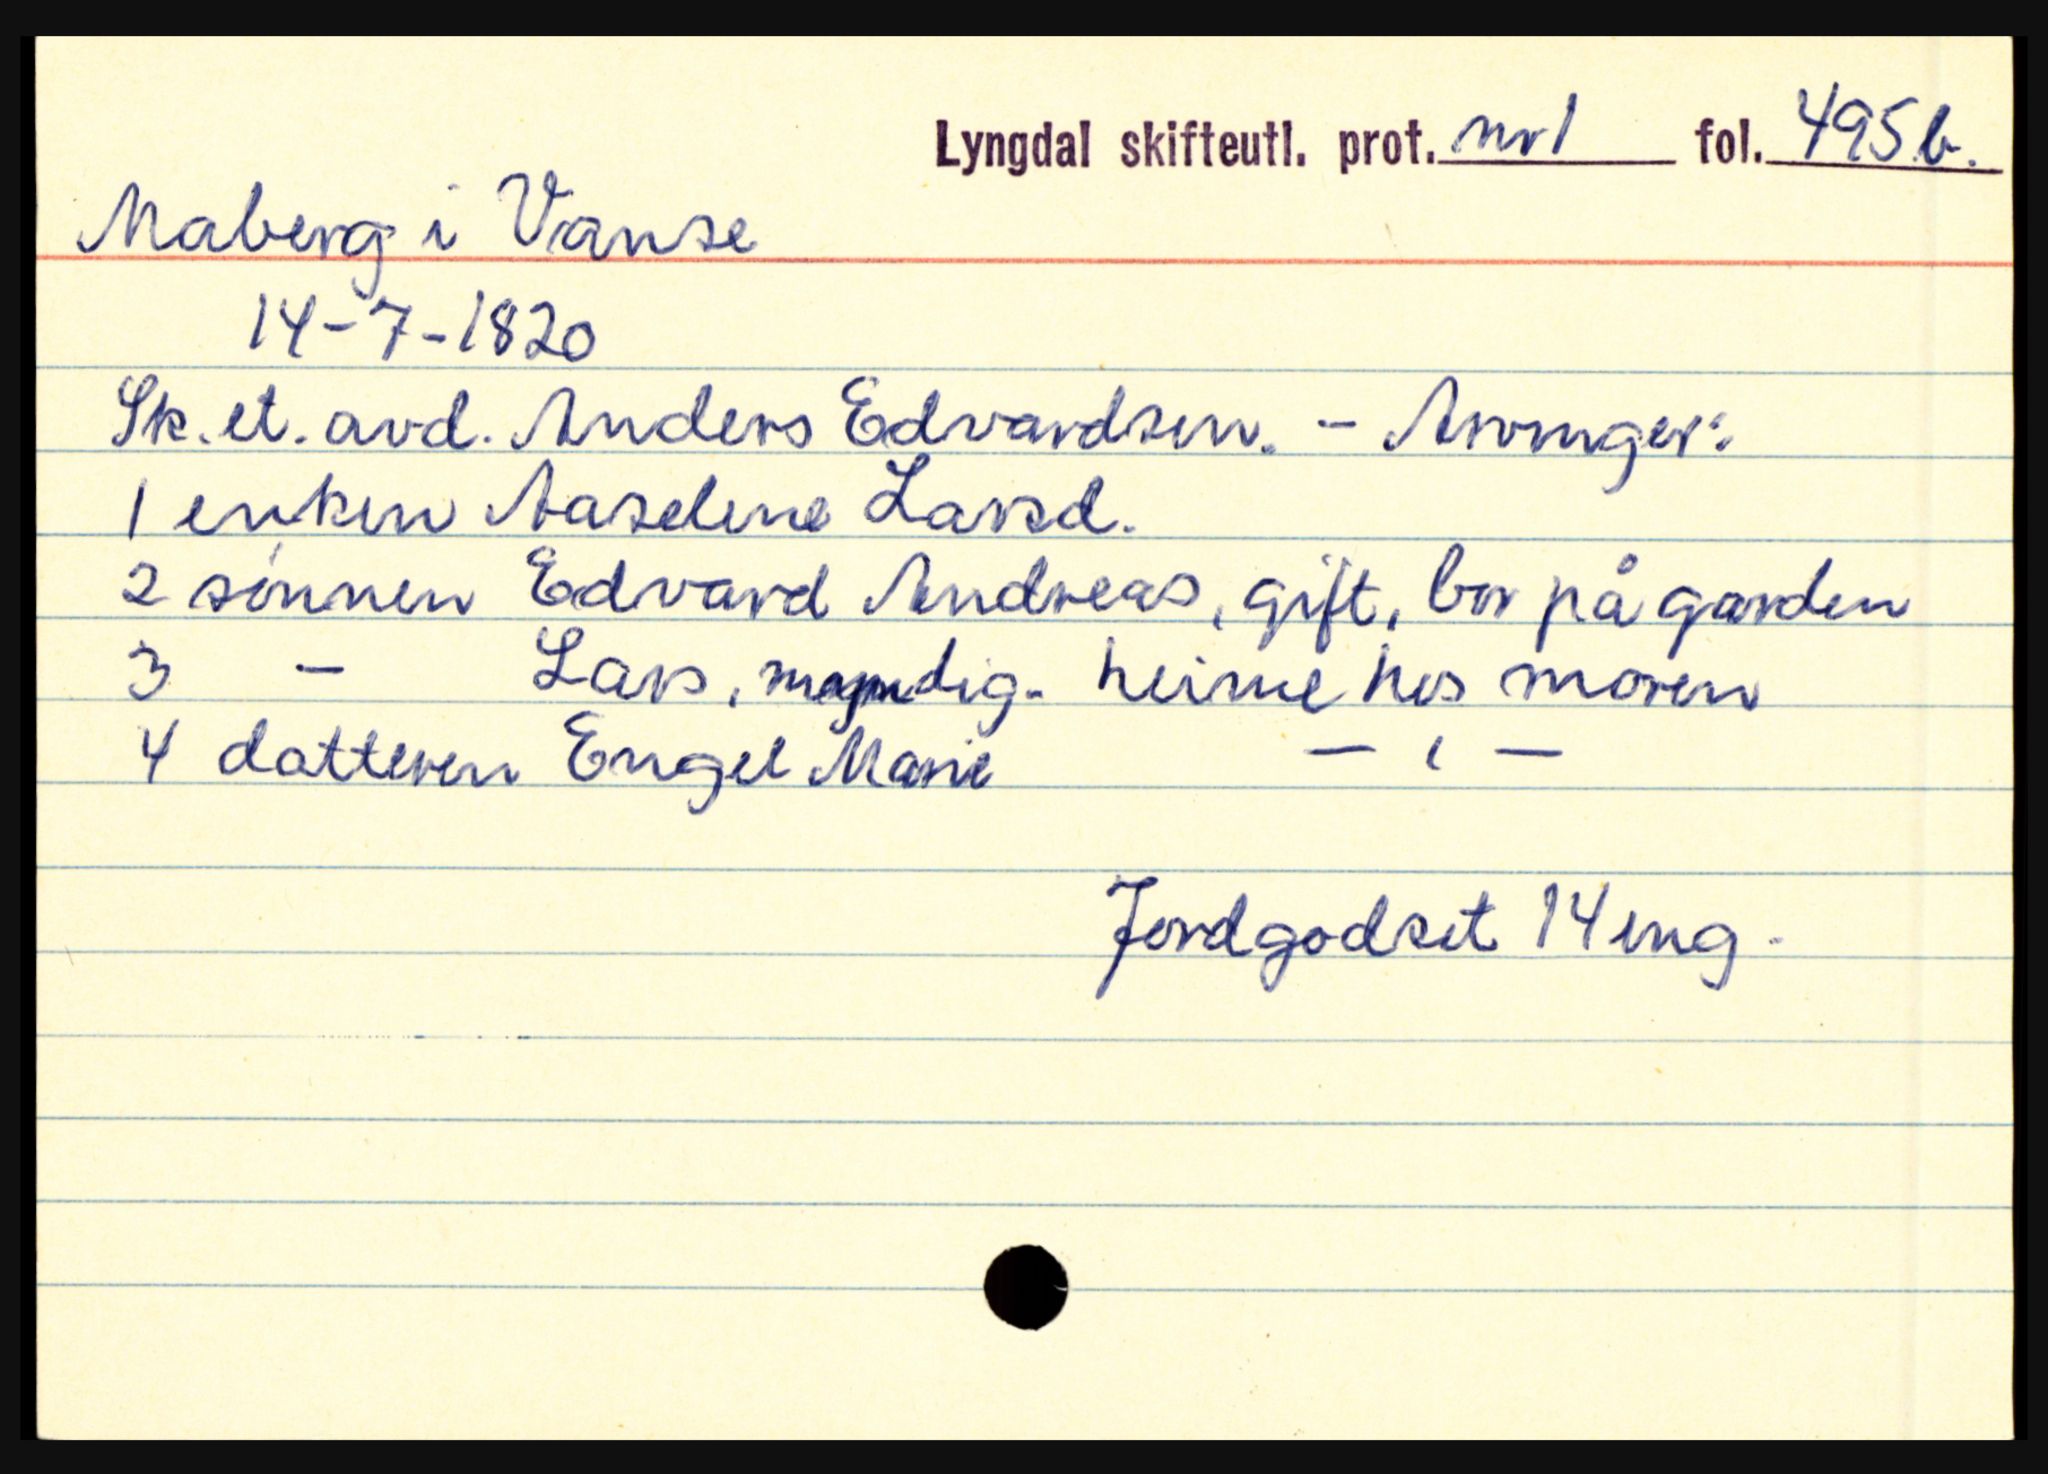 Lyngdal skifteutl. prot. nr 1 fol. 495.b.
Maberg i Vanse
14-7-1820
Sk. et. avd. Anders Edvardsen. - Arvinger:
1 enken Aaselene Larsd.
2 sønnen Edvard Andreas, gift, bor på garden
3 - Lars, myndig - heime hos moren
4 datteren Engel Marie - ı -
Jordgodset 14 eng.